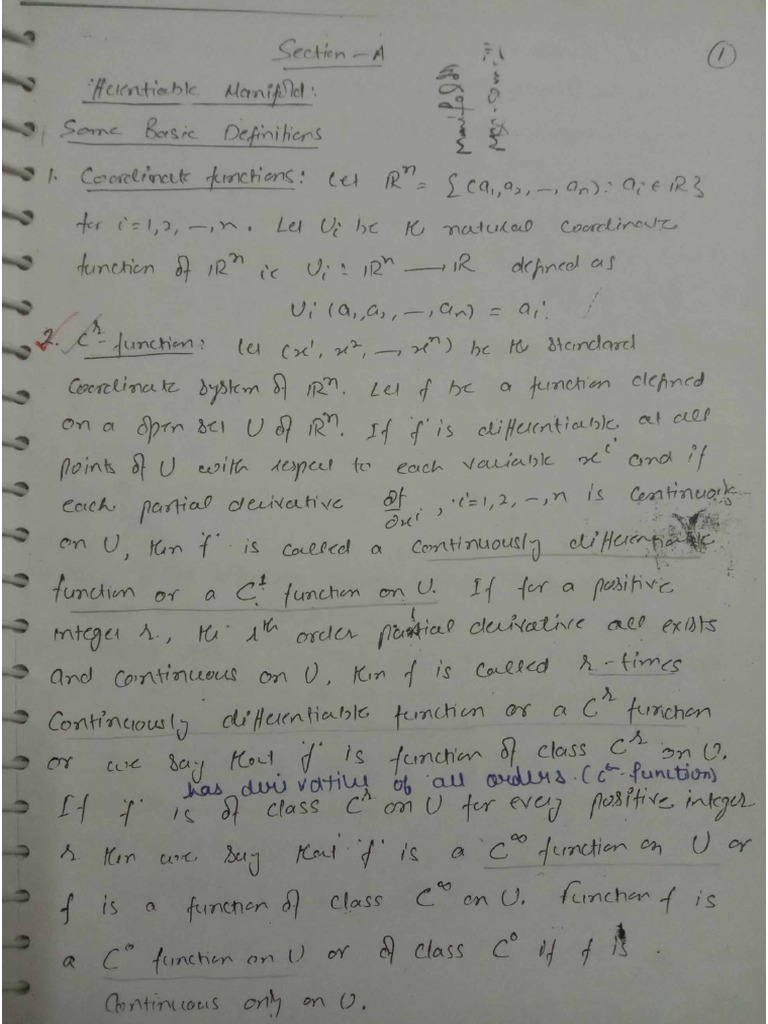 Section-A
①
fferentiable Manifold:
Manifolds
Some Basic Definitions
1. Coordinate functions: Let ℝⁿ = {(a₁,a₂,-,aₙ): aᵢ ∈ ℝ}
for i=1,2,-,n. Let Uᵢ be the natural coordinate
function of ℝⁿ ie Uᵢ : ℝⁿ ⟶ ℝ defined as
Uᵢ(a₁,a₂,-,aₙ) = aᵢ.
2. Cʳ-function: let (x¹, x², -, xⁿ) be the standard
Coordinate system of ℝⁿ. Let f be a function defined
on a open set U of ℝⁿ. If f is differentiable at all
points of U with respect to each variable xⁱ and if
each partial derivative ∂f/∂xⁱ, i=1,2,-,n is continuous
on U, then f is called a continuously differentiable
function or a C¹ function on U. If for a positive
integer r, the rᵗʰ order partial derivative all exists
and continuous on U, then f is called r-times
Continuously differentiable function or a Cʳ function
or we say that f is function of class Cʳ on U.
has derivative of all orders. (function)
If f is of class Cʳ on U for every positive integer
r then we say that f is a C^∞ function on U or
f is a function of class C^∞ on U. Function f is
a C⁰ function on U or of class C⁰ if f is
Continuous only on U.